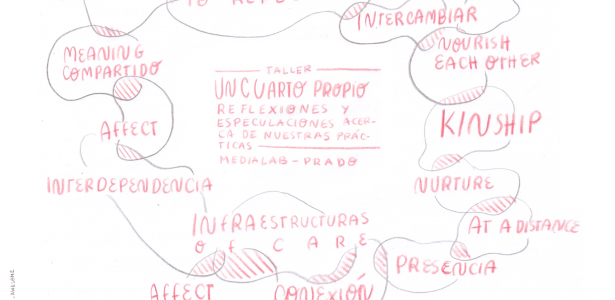 INTERCAMBIAR
MEANING
COMPARTIDO
NOURISH
EACH OTHER
TALLER
UN CUARTO PROPIO
REFLEXIONES Y
ESPECULACIONES ACER-
CA DE NUESTRAS PRÁC-
TICAS
MEDIALAB-PRADO
AFFECT
KINSHIP
INTERDEPENDENCIA
NURTURE
INFRAESTRUCTURAS
OF CARE
AT A DISTANCE
PRESENCIA
AFFECT
CONEXIÓN